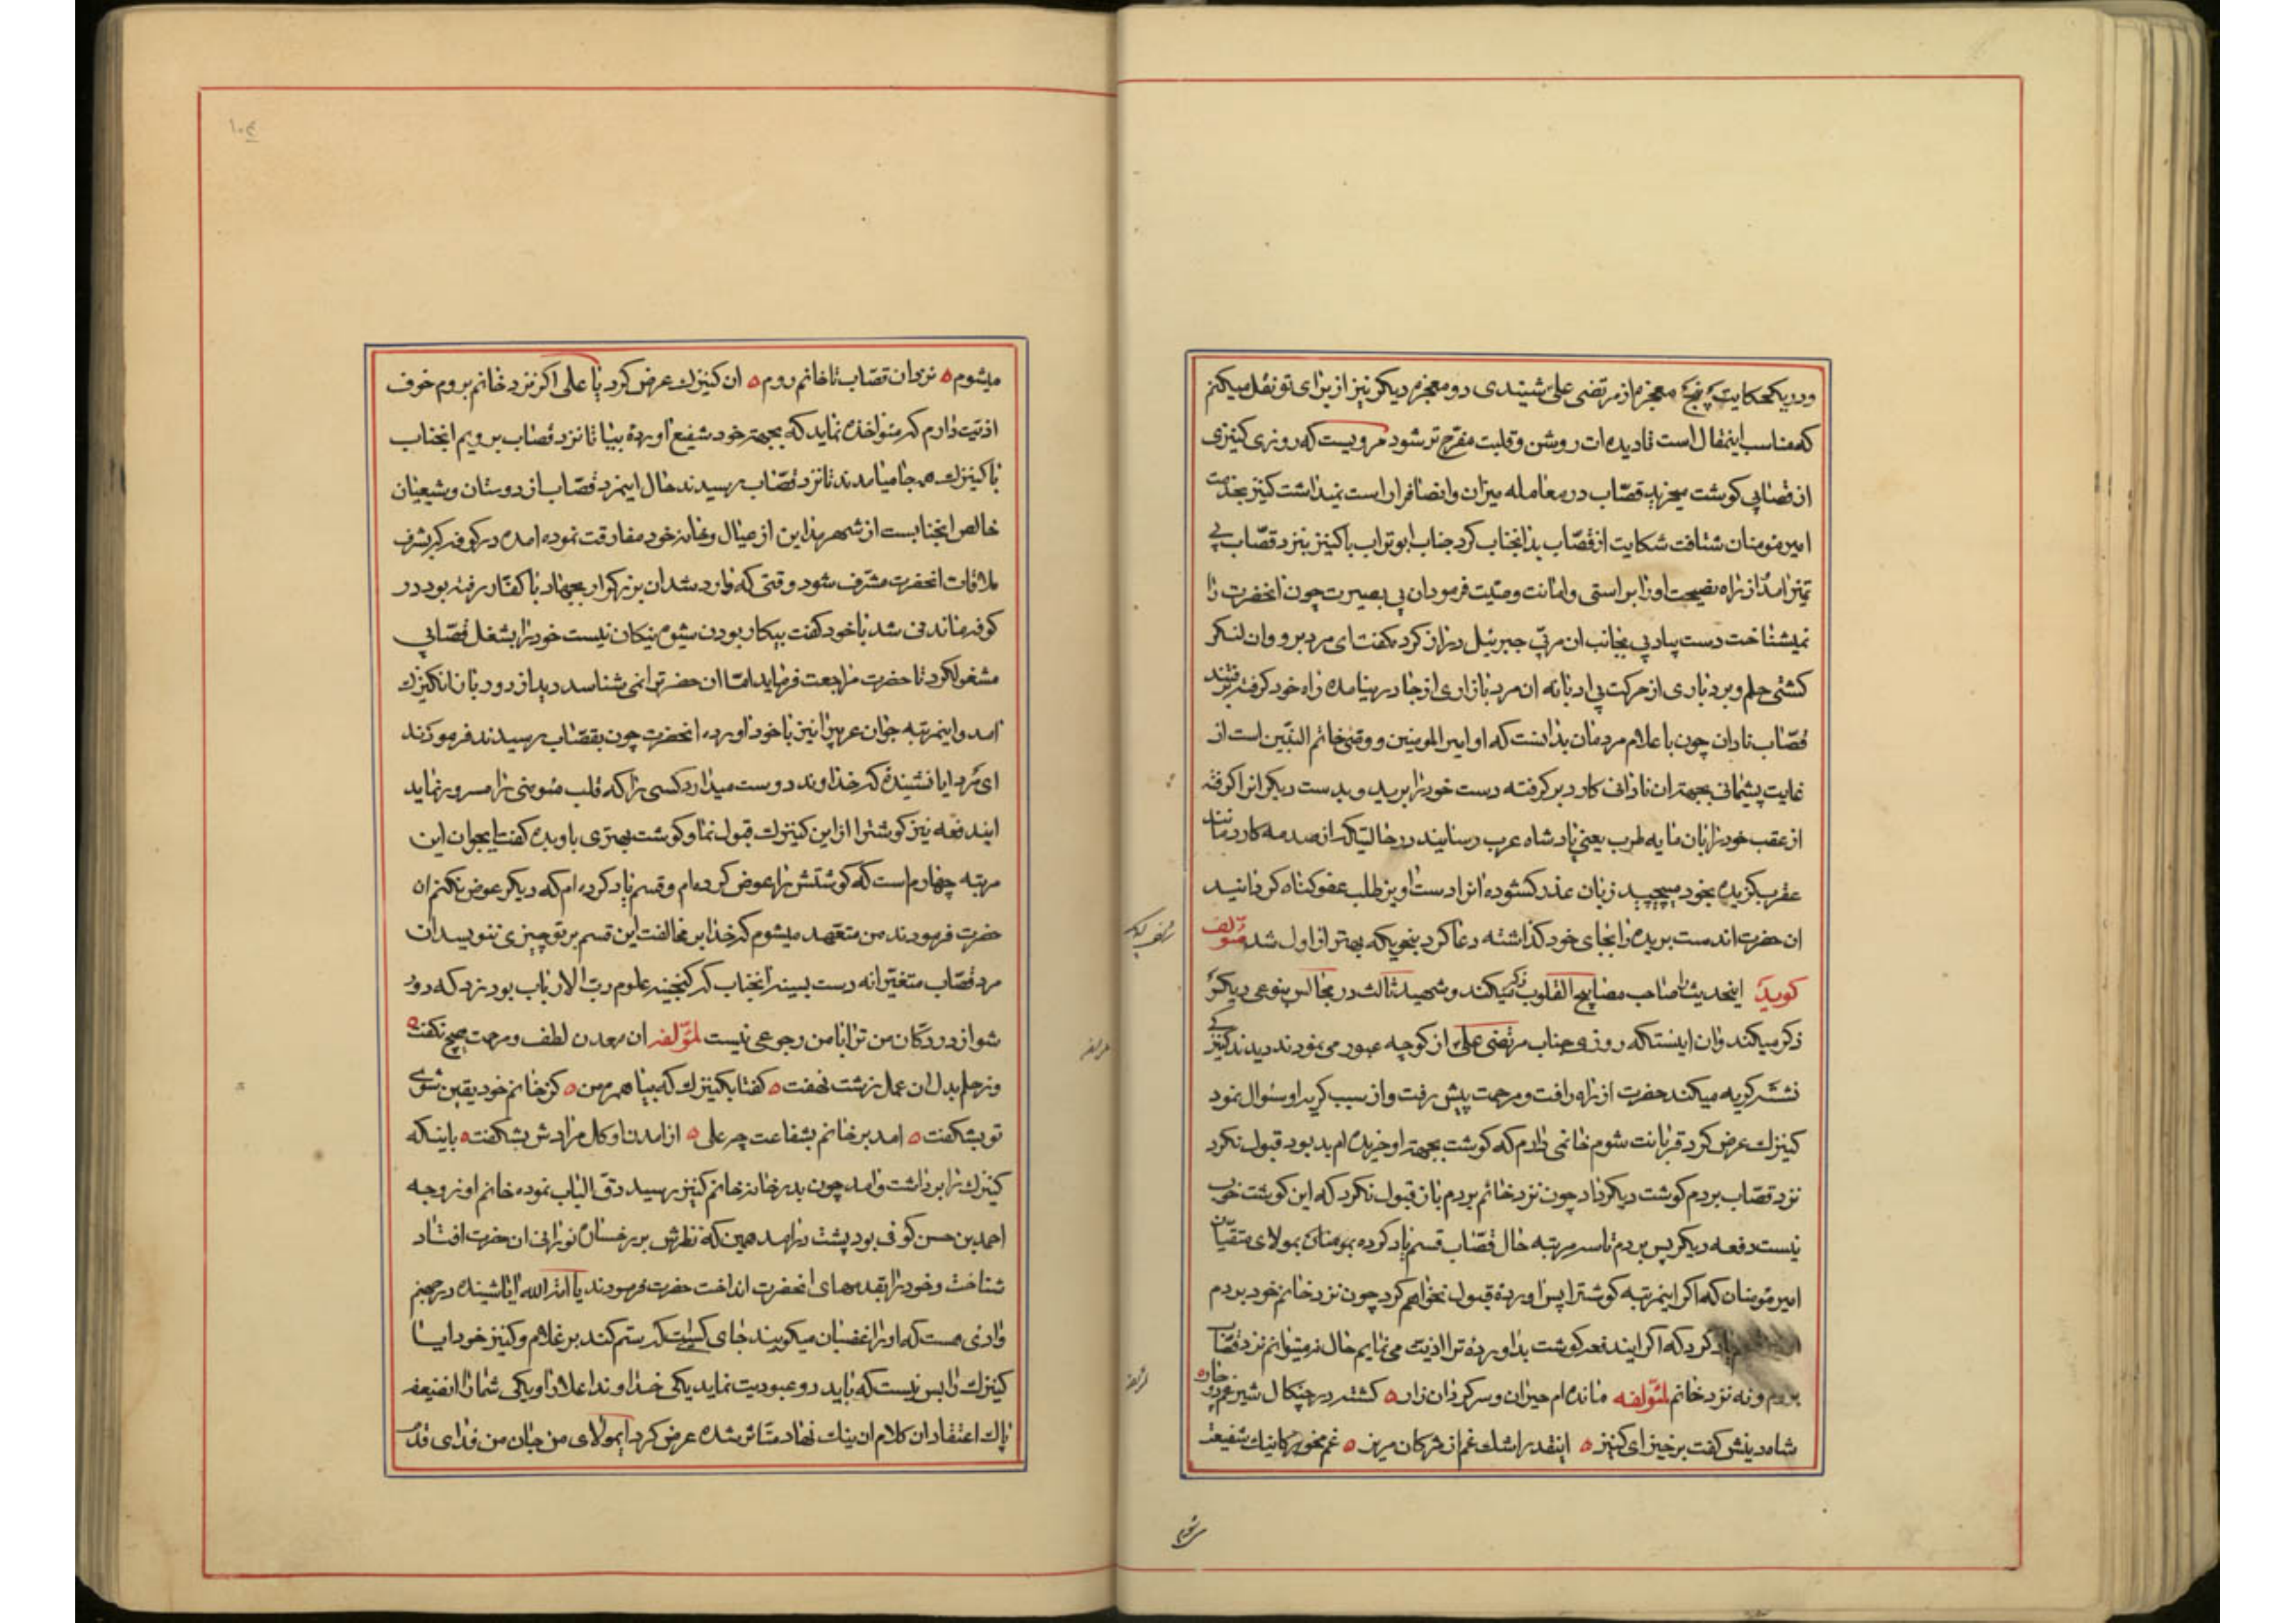 ودر یک حکایت پنج معجزه از مرتضی علی شنیدی دو معجزه دیگر نیز از برای تو نقل میکنم
که مناسب اینمقال است تا دیده ات روشن و قلبت مفرح تر شود مرویست که روزی کنیزی
از قصابی گوشت میخرید قصاب در معامله میزان وانصافرا راست نمیداشت کنیز بخدمت
امیر مؤمنان شتافت شکایت از قصاب بدانجناب کرد جناب ابوتراب با کنیز بنزد قصاب بی
تمیز امد از راه نصیحت او را براستی وامانت وصیت فرمود ان بی بصیرت چون انحضرت را
نمیشناخت دست بیادبی بجانب ان مربی جبرئیل دراز کرد بگفت ای مرد برو وان لنگر
کشتی حلم و بردباری از حرکت بی ادبانه ان مرد بازاری از جا در نیامده راه خود گرفته برفتند
قصاب نادان چون با علام مردمان بدانست که او امیر المومنین و وصی خاتم النبیین است از
غایت پشیمانی بجهة ان نادانی کارد برگرفته دست خود را برید و بدست دیگر انرا گرفته
از عقب خود را بان مایه طرب یعنی پادشاه عرب رسانید در حالتیکه از صدمه کارد مانند
عقرب گزیده بخود میپیچید زبان عذر گشوده انرا دست اویز طلب عفو گناه گردانید
ان حضرت اندست بریده را بجای خود گذاشته دعا کرد بنحویکه بهتر از اول شد مؤلف
گوید اینحدیث را صاحب مصابیح القلوب ذکر میکند و شهید ثالث در مجالس بنوعی دیگر
ذکر میکند وان اینستکه روزی جناب مرتضی علی از کوچه عبور می نمودند دیدند کنیزکی
نشسته گریه میکند حضرت از راه رافت و مرحمت پیش رفت و از سبب گریه او سئوال نمود
کنیزک عرض کرد قربانت شوم خانمی دارم که گوشت بجهة او خریده ام بد بود قبول نکرد
نزد قصاب بردم گوشت دیگر داد چون نزد خانم بردم باز قبول نکرد که این گوشت خوب
نیست دفعه دیگر پس بردم تا سه مرتبه حال قصاب قسم یاد کرده بمولای متقیان
امیر مؤمنان که اگر اینمرتبه گوشترا پس اورده قبول نخواهم کرد چون نزد خانم خود بردم
یاد کرد که اگر ایندفعه گوشت بد اورده ترا اذیت می نمایم حال نه میتوانم نزد قصاب
بروم ونه نزد خانم لمؤلفه مانده ام حیران و سرگردان زار ه کشته در چنگال شیر
شاه دینش گفت برخیز ای کنیز ه اینقدر اشک غم از مژگان مریز ه غم مخور کاینک شفیعت
میشوم ه نزد ان قصاب تا خانم روم ه ان کنیزک عرض کرد یا علی اگر نزد خانم بروم خوف
اذیت دارم که مؤاخذه نماید که بجهة خود شفیع اورده بیا تا نزد قصاب برویم انجناب
با کنیزک همه جا میامدند تا نزد قصاب رسیدند حال اینمرد قصاب از دوستان وشیعیان
خالص انجنابست از شهر مداین از عیال و خانه خود مفارقت نموده امده در کوفه که بشرف
ملاقات انحضرت مشرف شود وقتی که وارد شد ان بزرگوار بجهاد با کفار رفته بود در
کوفه ماندنی شد با خود گفت بیکار بودن شیوم نیکان نیست خود را بشغل قصابی
مشغول کرد تا حضرت مراجعت فرماید اما ان حضرترا نمی شناسد دید از دور باز انکنیزک
امد و اینمرتبه جوان عربیرا نیز با خود اورده انحضرت چون بقصاب رسیدند فرمودند
ای مرد ایا نشنیده که خداوند دوست میدارد کسی را که قلب مؤمنی را مسرور نماید
ایندفعه نیز گوشترا از این کنیزک قبول نما و گوشت بهتری باو بده گفت ایجوان این
مرتبه چهارم است که گوشتش را عوض کرده ام و قسم یاد کرده ام که دیگر عوض نکنم ان
حضرت فرمودند من متعهد میشوم که خدا بر مخالفت این قسم بر تو چیزی ننویسد ان
مرد قصاب متغیرانه دست بسینه انجناب که گنجینه علوم رب الارباب بود زد که دور
شو از در دکان من ترا با من رجوعی نیست لمؤلفه ان معدن لطف و مرحمت هیچ نگفت ه
وز حلم بدل ان عمل زشت نهفت ه گفتا بکنیزک که بیا همره من ه کز خانم خود یقین شوی
تو بشکفت ه امد بر خانم بشفاعت چه علی ه از امدن او گل مرادش بشکفت ه باینکه
کنیزک را برداشت وامد چون بدر خانه خانم کنیز رسید دق الباب نموده خانم او زوجه
احمد بن حسن کوفی بود پشت در امد همین که نظرش بر رخسار نورانی ان حضرت افتاد
شناخت و خود را بقدمهای انحضرت انداخت حضرت فرمودند یا امة الله ایا نشنیده در جهنم
وادئی هست که او را غضبان میگویند جای کسیست که ستم کند بر غلام وکنیز خود ایا
کنیزک را بس نیست که باید دو عبودیت نماید یکی خداوند اعلا را ویکی شما را انضعیفه
پاک اعتقاد از کلام ان نیک نهاد متاثر شده عرض کرد ایمولای من جان من فدای قدم